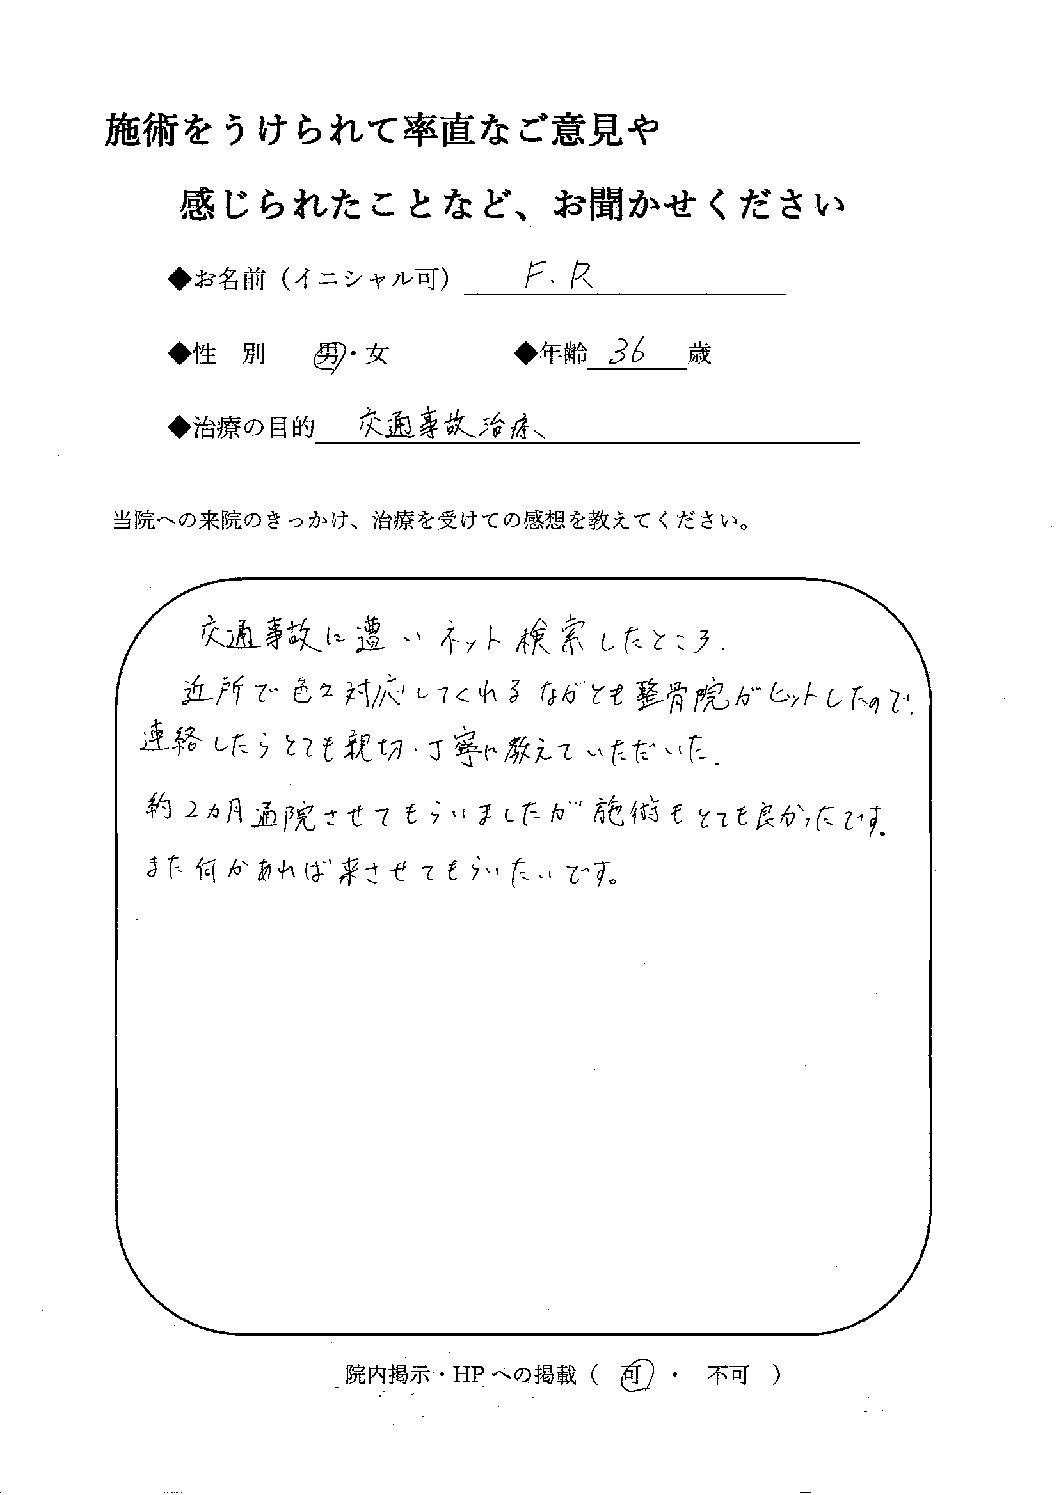 施術をうけられて率直なご意見や
感じられたことなど、お聞かせください
◆お名前（イニシャル可） F.R
◆性 別 男・女 ◆年齢 36 歳
◆治療の目的 交通事故治療
当院への来院のきっかけ、治療を受けての感想を教えてください。
交通事故に遭い ネット検索したところ、
近所で色々対応してくれる ながとも整骨院がヒットしたので、
連絡したらとても親切・丁寧に教えていただいた。
約2カ月通院させてもらいましたが 施術もとても良かったです。
また何かあれば来させてもらいたいです。
院内掲示・HPへの掲載（ 可 ・ 不可 ）